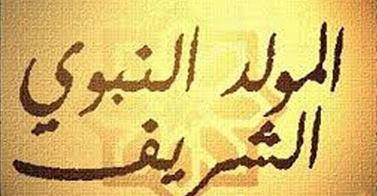 المولد النبوي
الشريف